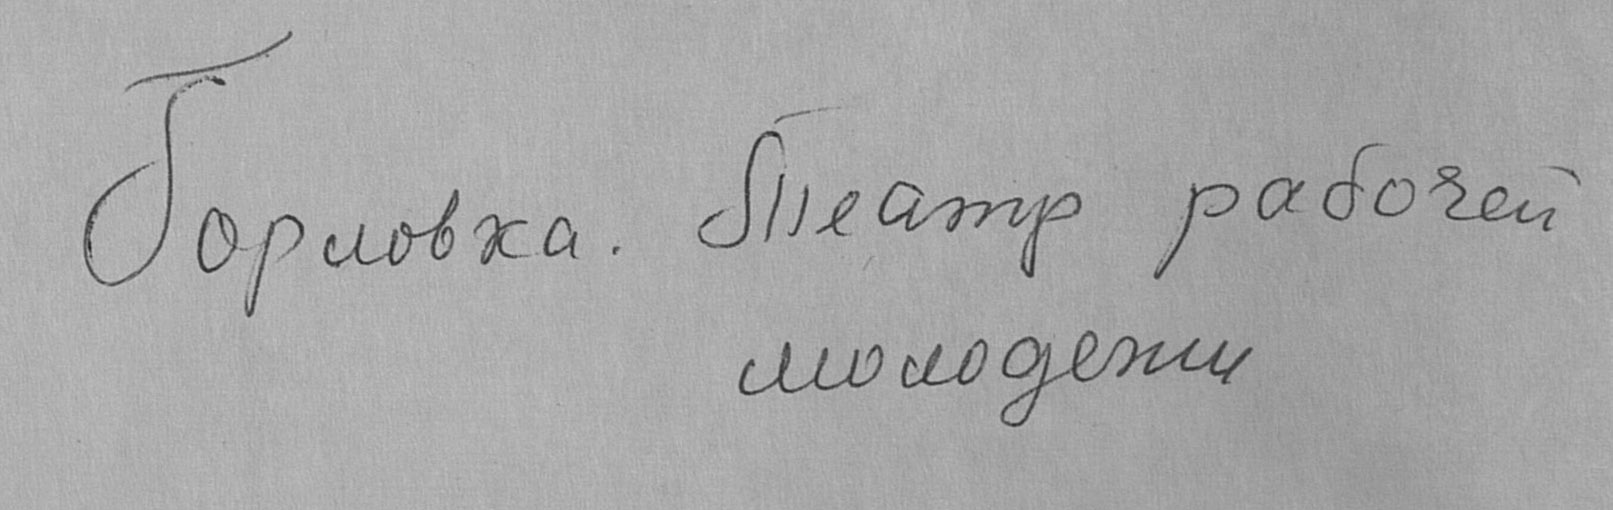 Горловка. Театр рабочей
молодежи